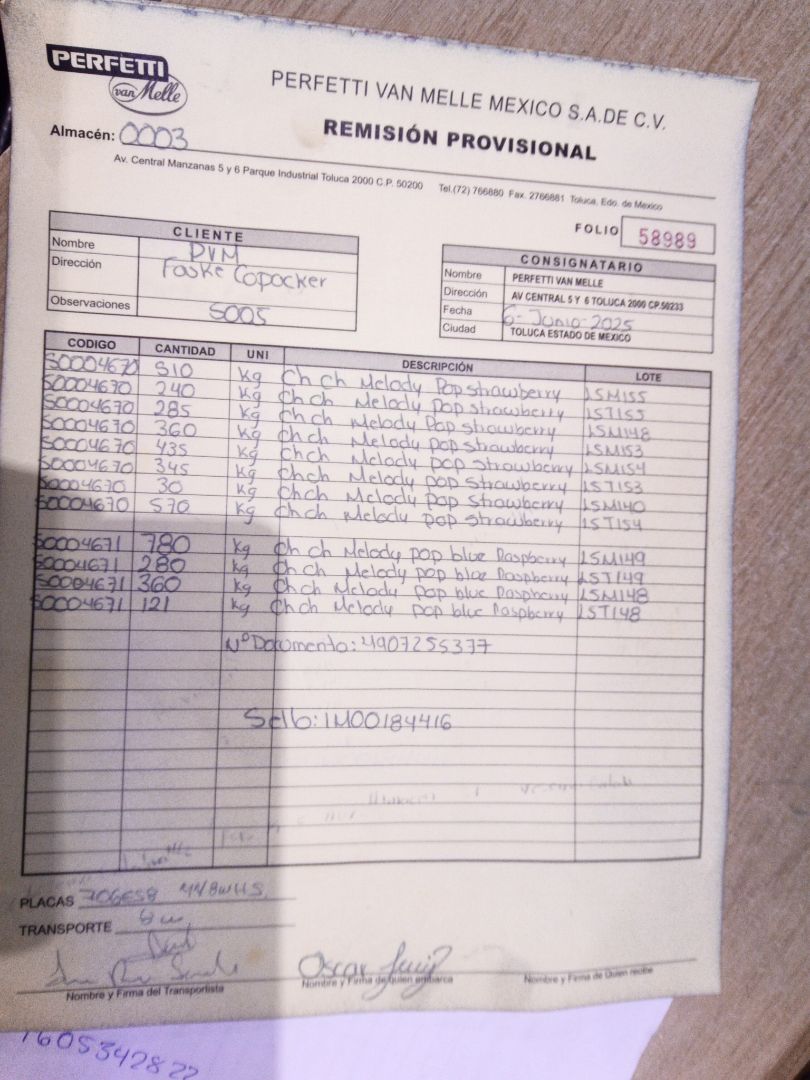 PERFETTI
van Melle
PERFETTI VAN MELLE MEXICO S.A.DE C.V.
Almacén: 0003
REMISIÓN PROVISIONAL
Av. Central Manzanas 5 y 6 Parque Industrial Toluca 2000 C.P. 50200 Tel.(72) 766880 Fax. 2766881 Toluca, Edo. de Mexico
FOLIO 58989
CLIENTE
Nombre PVM
Dirección Faske Copacker
Observaciones S005
CONSIGNATARIO
Nombre PERFETTI VAN MELLE
Dirección AV CENTRAL 5 Y 6 TOLUCA 2000 CP.50233
Fecha 6-Junio-2025
Ciudad TOLUCA ESTADO DE MEXICO
CODIGO CANTIDAD UNI DESCRIPCIÓN LOTE
S0004670 510 Kg Ch ch Melody Pop strawberry LSM155
S0004670 240 Kg Ch ch Melody Pop strawberry LST155
S0004670 285 Kg Ch ch Melody Pop strawberry LSM148
S0004670 360 Kg Ch ch Melody pop strawberry LSM153
S0004670 435 Kg Ch ch Melody pop strawberry LSM154
S0004670 345 Kg Ch ch Melody pop strawberry LST153
S0004670 30 Kg Ch ch Melody pop strawberry LSM140
S0004670 570 Kg Ch ch Melody pop strawberry LST154
S0004671 780 Kg Ch ch Melody pop blue Raspberry LSM149
S0004671 280 Kg Ch ch Melody pop blue Raspberry LST149
S0004671 360 Kg Ch ch Melody pop blue Raspberry LSM148
S0004671 121 Kg Ch ch Melody pop blue Raspberry LST148
N° Documento: 4907255377
Sello: IM00184416
PLACAS 706ES8
TRANSPORTE
Oscar
Nombre y Firma del Transportista Nombre y Firma de quien embarca Nombre y Firma de Quien recibe
1605342822